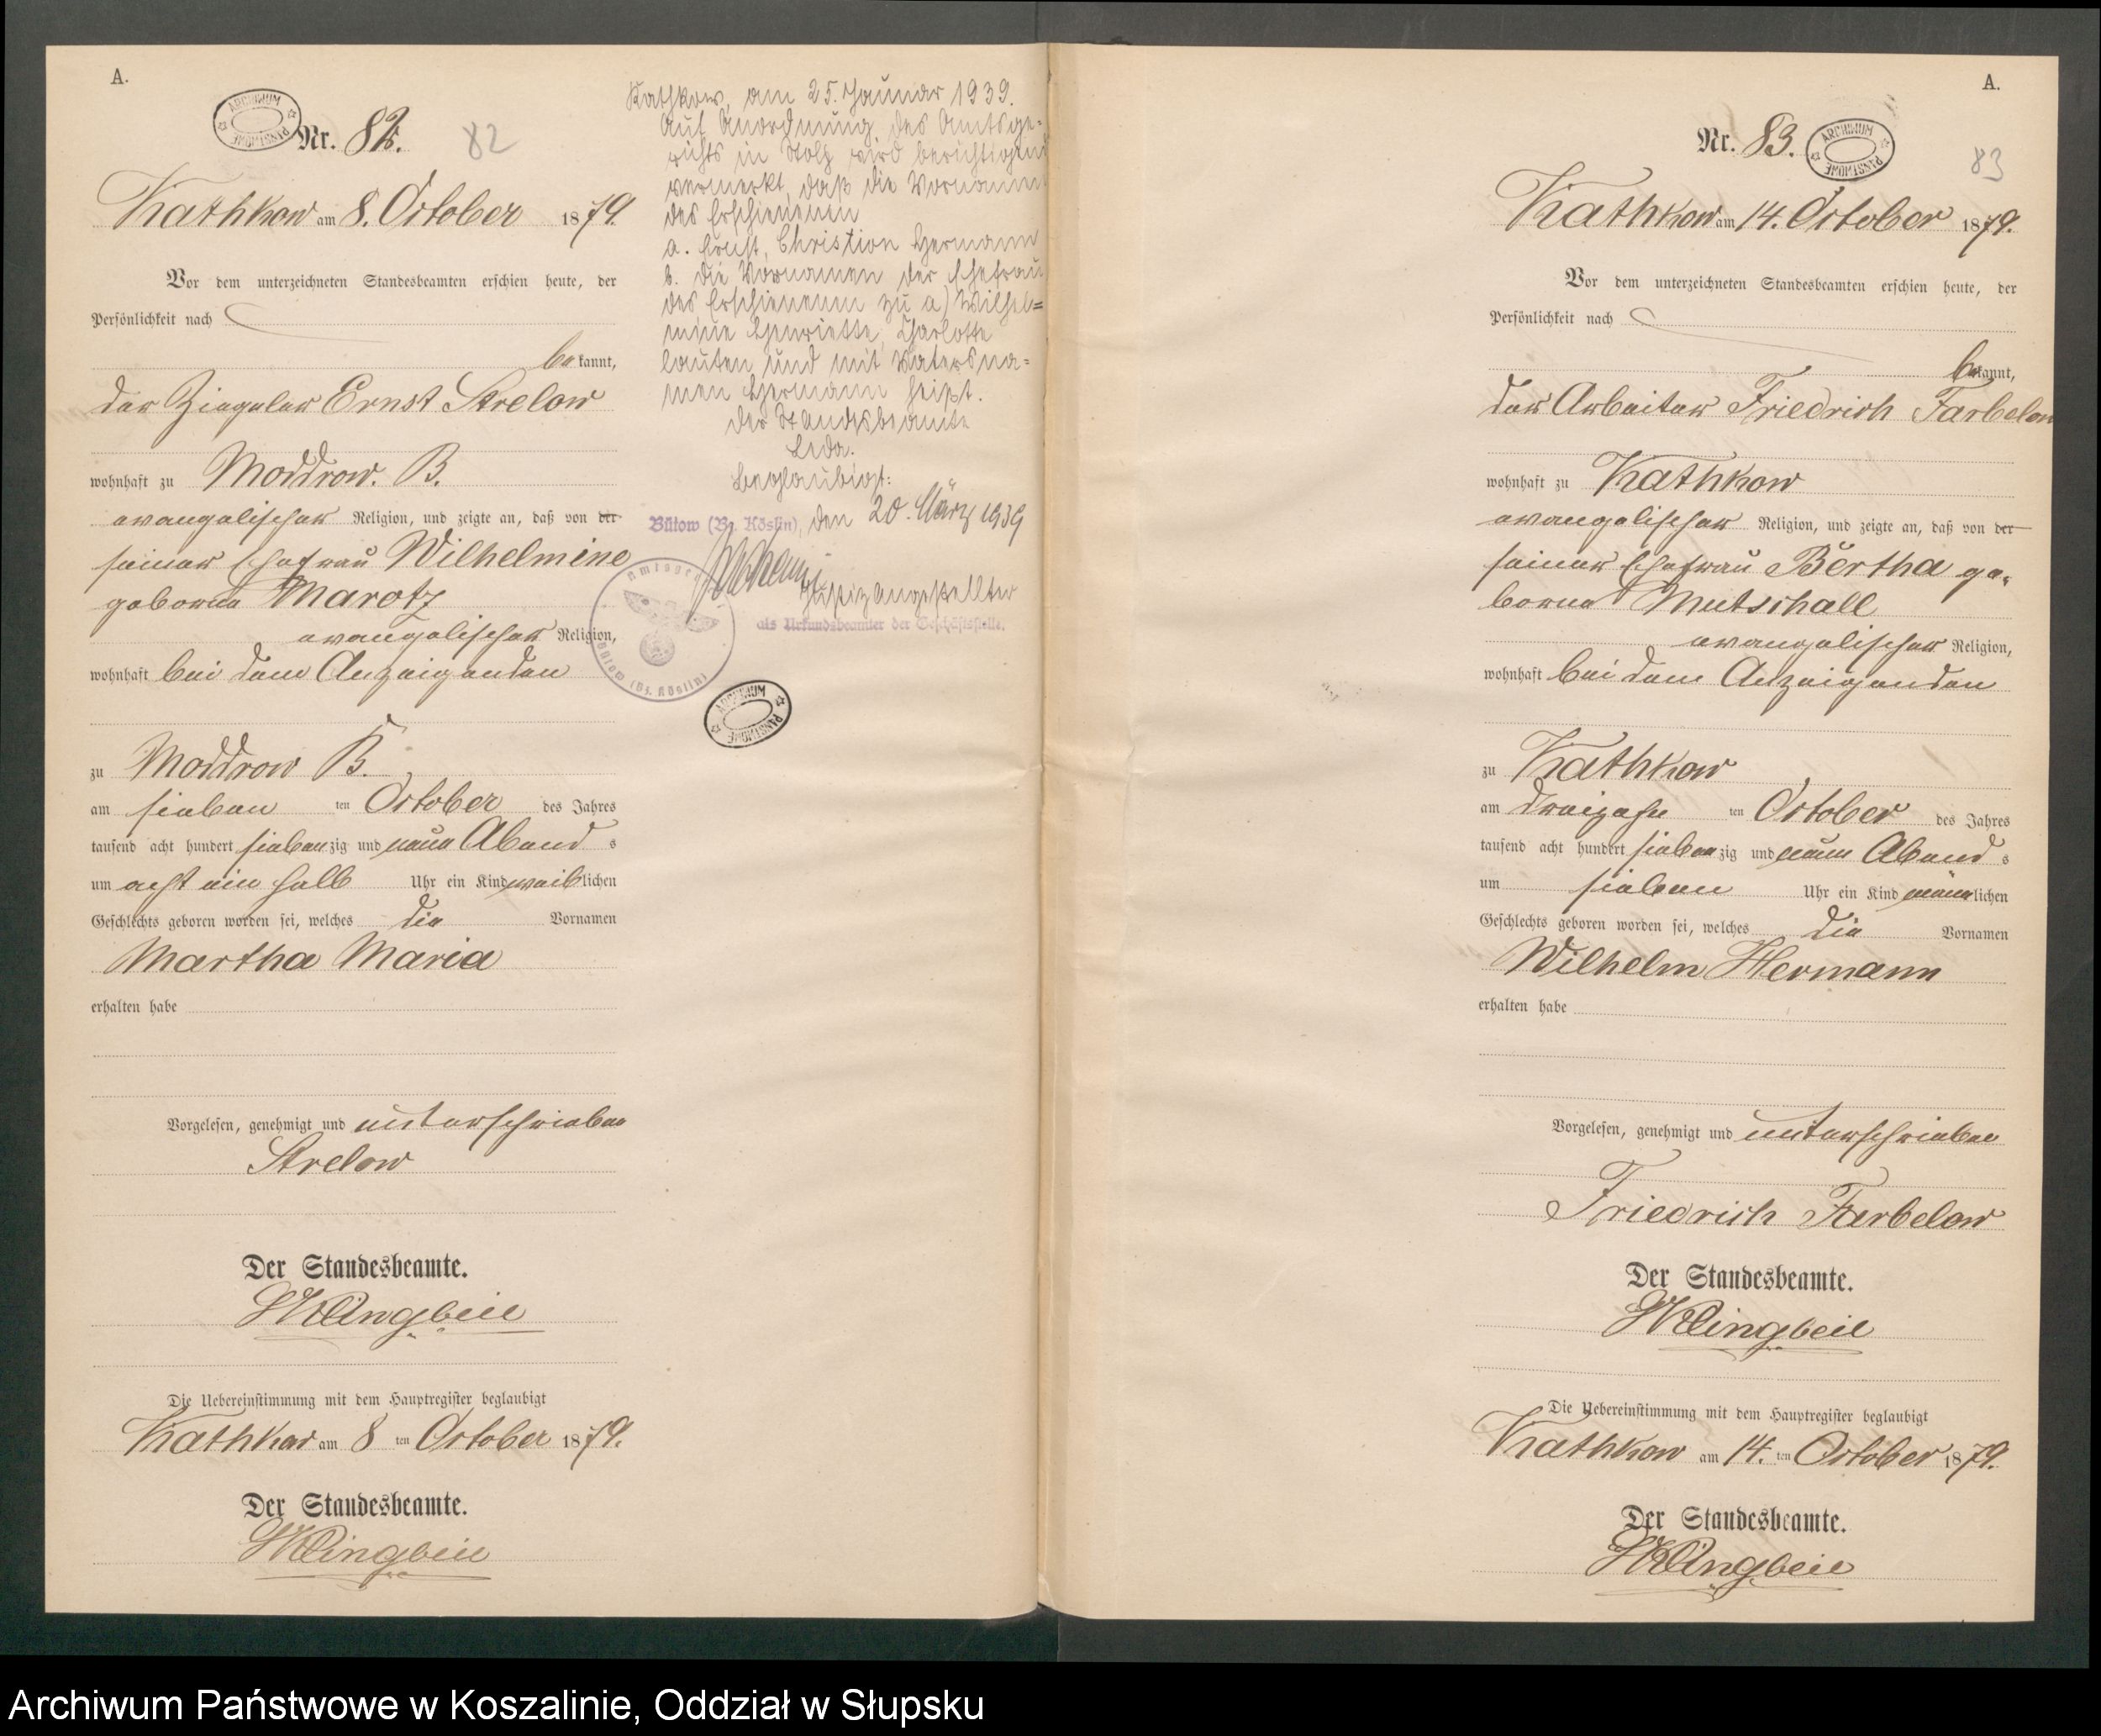 A.
ARCHIWUM PAŃSTWOWE
Nr. 82.
82
Kathkow am 8. October 1879.
Vor dem unterzeichneten Standesbeamten erschien heute, der
Persönlichkeit nach
bekannt,
der Ziegeler Ernst Strelow
wohnhaft zu Moddrow. B.
evangelischer Religion, und zeigte an, daß von der
seiner Ehefrau Wilhelmine
geborne Marotz
evangelischer Religion,
wohnhaft bei dem Anzeigenden
zu Moddrow B.
am sieben ten October des Jahres
tausend acht hundert siebenzig und neun Abends
um acht ein halb Uhr ein Kind weiblichen
Geschlechts geboren worden sei, welches die Vornamen
Martha Maria
erhalten habe
Vorgelesen, genehmigt und unterschrieben
Strelow
Der Standesbeamte.
Klingbeil
Die Uebereinstimmung mit dem Hauptregister beglaubigt
Kathkow am 8 ten October 1879.
Der Standesbeamte.
Klingbeil
Kathkow, am 25. Januar 1939.
Auf Anordnung des Amtsge=
richts in Stolp wird berichtigend
vermerkt, daß die Vornamen
des Erschienenen
a. Ernst, Christion Hermann
b. die Vornamen der Ehefrau
des Erschienenen zu a) Wilhel=
mine Henriette, Charlotte
lauten und mit Vatersna=
men Hermann heißt.
Der Standesbeamte
Beglaubigt:
Bütow (Bz. Köslin), den 20. März 1939
Justizangestellter
als Urkundsbeamter der Geschäftsstelle.
Amtsgericht
Bütow (Bz. Köslin)
ARCHIWUM PAŃSTWOWE
A.
Nr. 83.
ARCHIWUM PAŃSTWOWE
83
Kathkow am 14. October 1879.
Vor dem unterzeichneten Standesbeamten erschien heute, der
Persönlichkeit nach
bekannt,
der Arbeiter Friedrich Farbelow
wohnhaft zu Kathkow
evangelischer Religion, und zeigte an, daß von der
seiner Ehefrau Bertha ge=
borne Mutschall
evangelischer Religion,
wohnhaft bei dem Anzeigenden
zu Kathkow
am dreizehn ten October des Jahres
tausend acht hundert siebenzig und neun Abends
um sieben Uhr ein Kind männlichen
Geschlechts geboren worden sei, welches die Vornamen
Wilhelm Hermann
erhalten habe
Vorgelesen, genehmigt und unterschrieben
Friedrich Farbelow
Der Standesbeamte.
Klingbeil
Die Uebereinstimmung mit dem Hauptregister beglaubigt
Kathkow am 14. ten October 1879.
Der Standesbeamte.
Klingbeil
Archiwum Państwowe w Koszalinie, Oddział w Słupsku